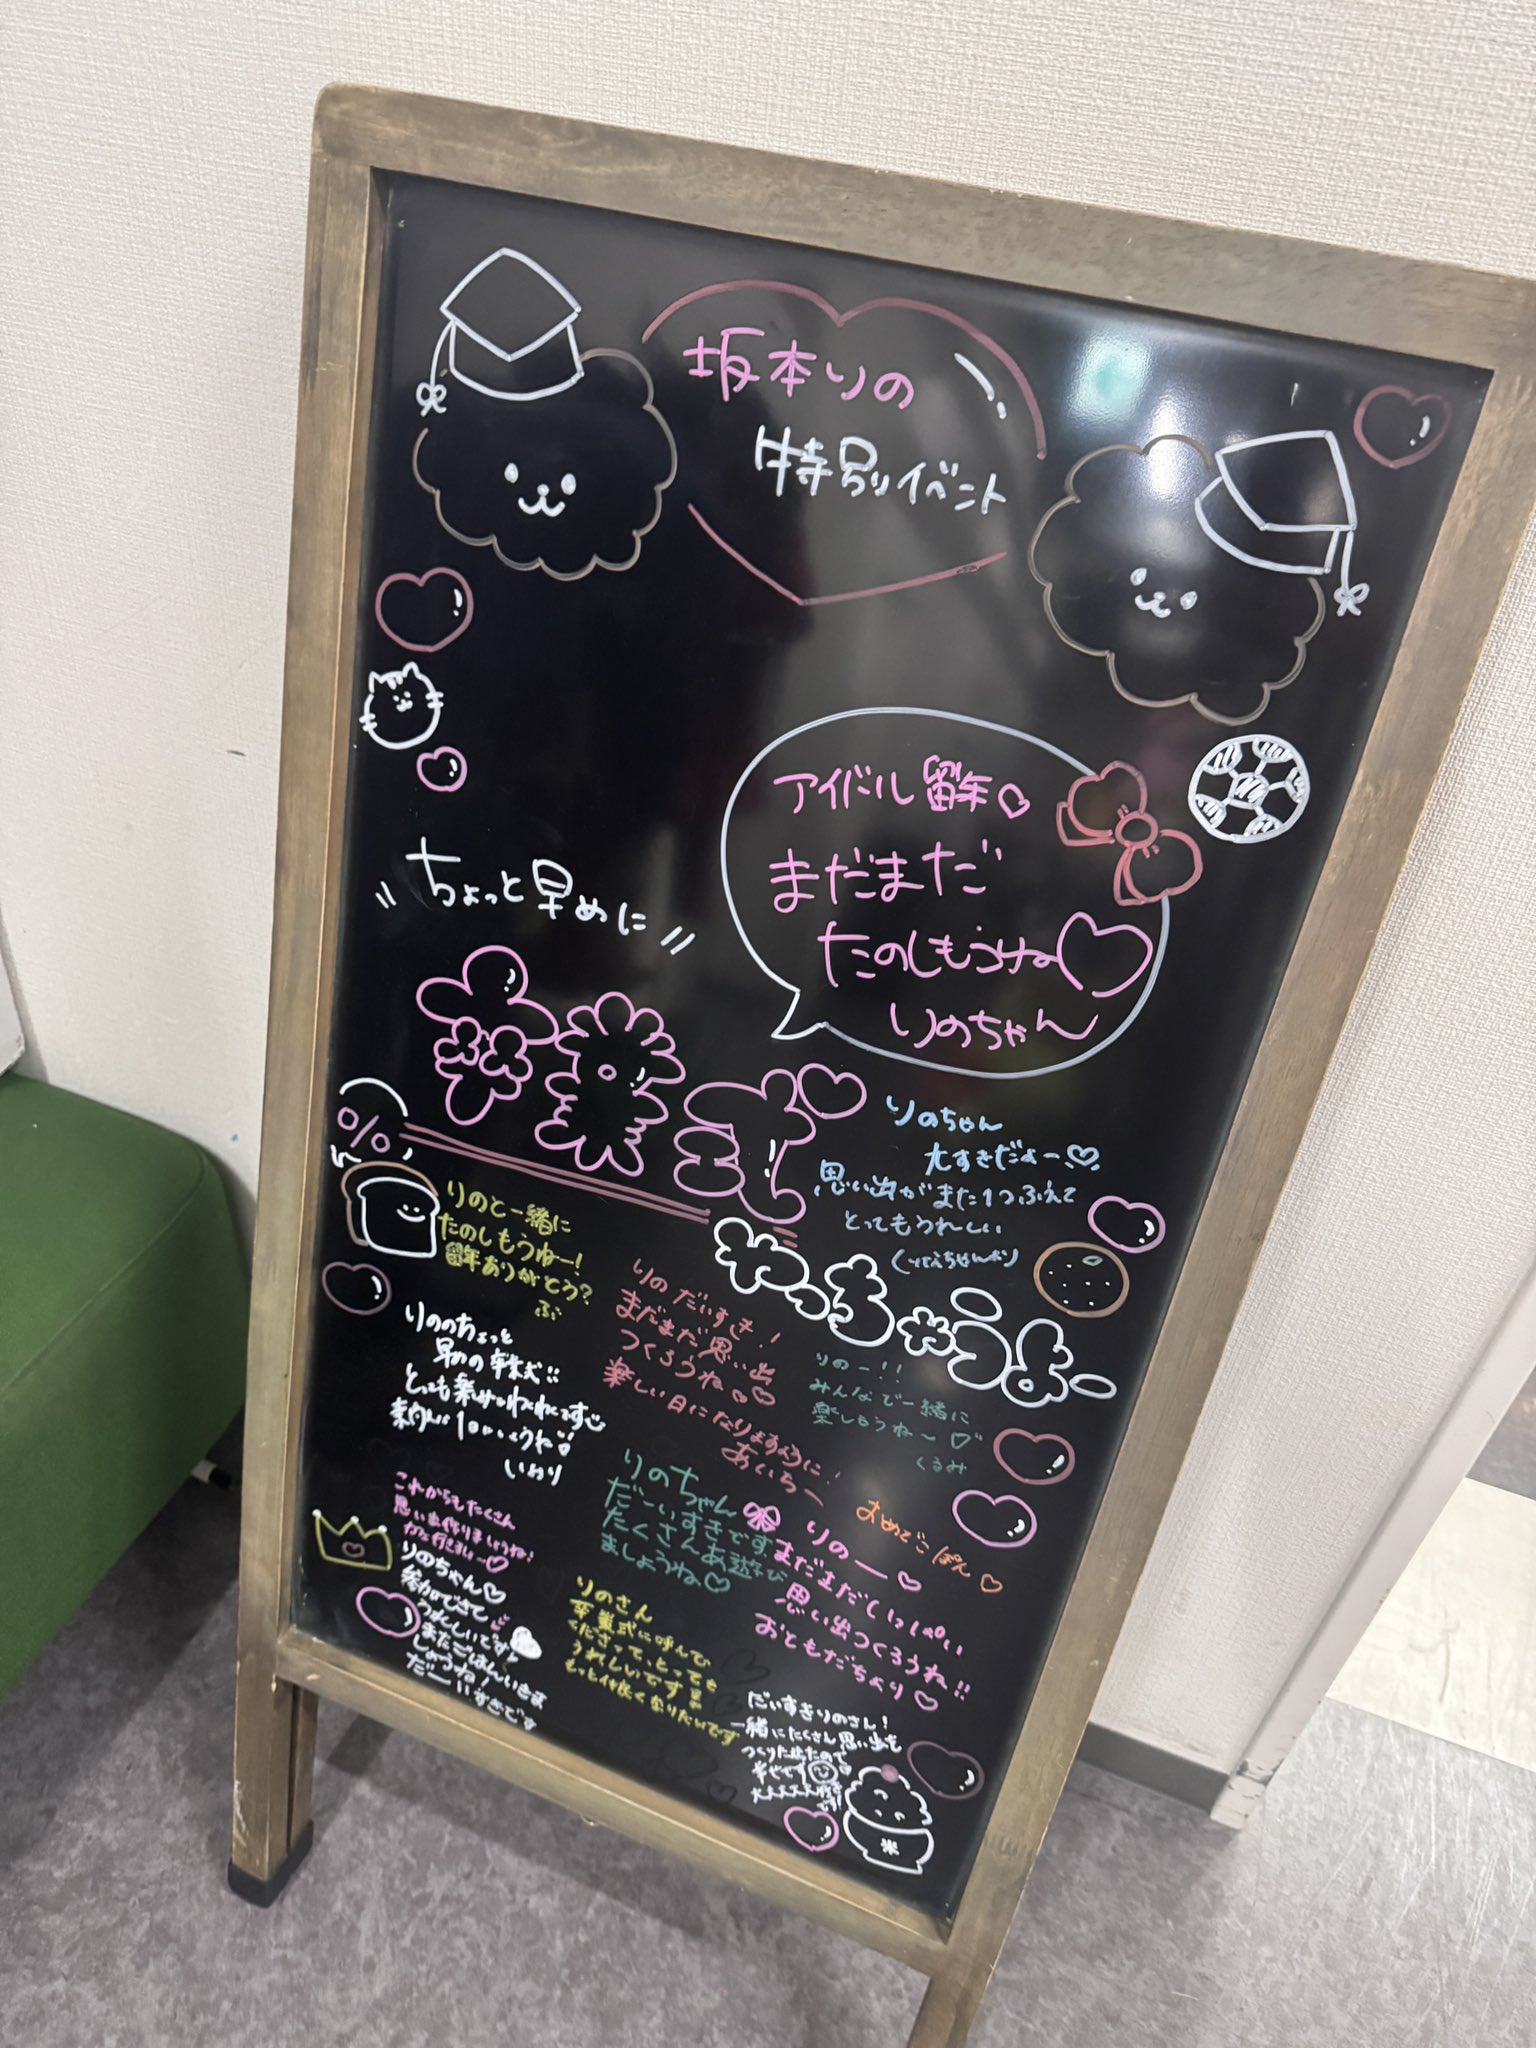 坂本りの
特別イベント
アイドル留年♡
まだまだ
たのしもうね♡
りのちゃん
ちょっと早めに
卒業式
やっちゃうよー
りのちゃん
大すきだよー♡
思い出がまた1つふえて
とってもうれしい
りのと一緒に
たのしもうねー!
留年ありがとう?
ぶ
りの だいすき!
まだまだ思い出
つくろうね
楽しい日になりますように!
あいちー
りのー!!
みんなで一緒に
楽しもうね〜♡
くるみ
りののちょっと
早めの卒業式!!
いおり
りのちゃん
だーいすきです
たくさんお遊び
ましょうね♡
おめでこぽん♡
りのー♡
まだまだいっぱい
思い出つくろうね!!
おともだちより♡
これからもたくさん
思い出作りましょうね!
りのちゃん♡
参加できて
うれしいです!
またごはんいきま
しょうね!
だーいすきです
りのさん
卒業式に呼んで
くださって、とっても
うれしいです
もっと仲良くなりたいです
だいすきりのさん!
一緒にたくさん思い出を
つくりた
米